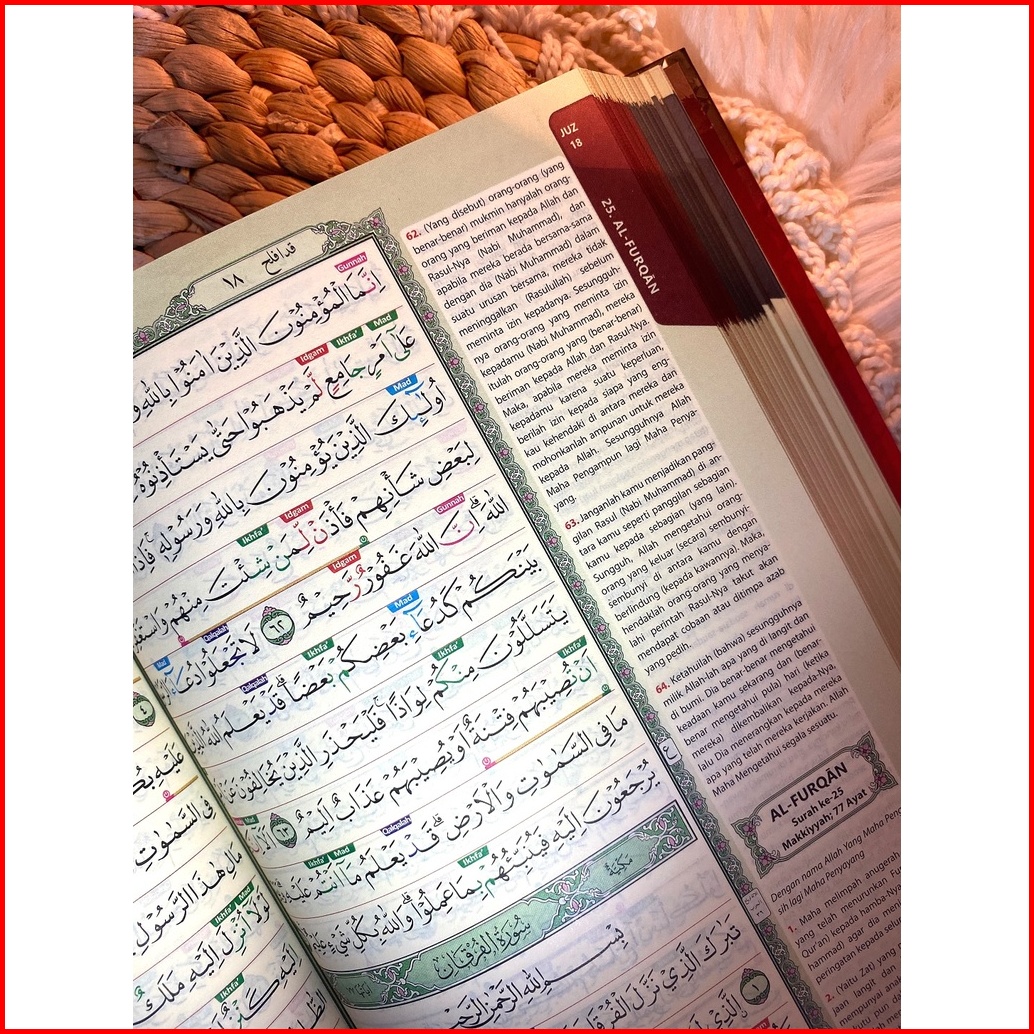 قد افلح ١٨
Gunnah
اِنَّمَا الْمُؤْمِنُوْنَ الَّذِيْنَ اٰمَنُوْا بِاللّٰهِ
Idgam Ikhfa' Mad
عَلٰٓى اَمْرٍ جَامِعٍ لَّمْ يَذْهَبُوْا حَتّٰى يَسْتَأْذِنُوْهُ
Mad
اُولٰۤىِٕكَ الَّذِيْنَ يُؤْمِنُوْنَ بِاللّٰهِ وَرَسُوْلِهٖ فَاِذَا
Ikhfa' Idgam
لِبَعْضِ شَأْنِهِمْ فَأْذَنْ لِّمَنْ شِئْتَ مِنْهُمْ
Idgam Gunnah
اللّٰهَ اِنَّ اللّٰهَ غَفُوْرٌ رَّحِيْمٌ ٦٢ لَا تَجْعَلُوْا دُعَاۤءَ
Mad Qalqalah Mad
بَيْنَكُمْ كَدُعَاۤءِ بَعْضِكُمْ بَعْضًا قَدْ يَعْلَمُ اللّٰهُ
Qalqalah Ikhfa' Ikhfa'
يَتَسَلَّلُوْنَ مِنْكُمْ لِوَاذًا فَلْيَحْذَرِ الَّذِيْنَ يُخَالِفُوْنَ عَنْ
Ikhfa'
اَنْ تُصِيْبَهُمْ فِتْنَةٌ اَوْ يُصِيْبَهُمْ عَذَابٌ اَلِيْمٌ ٦٣ اَلَآ
مَا فِى السَّمٰوٰتِ وَالْاَرْضِ قَدْ يَعْلَمُ مَآ اَنْتُمْ عَلَيْهِ
Ikhfa' Mad Qalqalah
يُرْجَعُوْنَ اِلَيْهِ فَيُنَبِّئُهُمْ بِمَا عَمِلُوْا وَاللّٰهُ بِكُلِّ شَيْءٍ
Ikhfa'
سُوْرَةُ الْفُرْقَانِ مَكِّيَّةٌ
بِسْمِ اللّٰهِ الرَّحْمٰنِ الرَّحِيْمِ
تَبٰرَكَ الَّذِيْ نَزَّلَ الْفُرْقَانَ
١ الَّذِيْ
٤
فِى السَّمٰوٰتِ
مَالِ هٰذَا الرَّسُوْلِ
Ikhfa' Mad
لَوْلَآ اُنْزِلَ اِلَيْهِ مَلَكٌ
Ikhfa'
اِلَيْهِ كَنْزٌ
JUZ
18
25. AL-FURQĀN
62. (Yang disebut) orang-orang (yang
benar-benar) mukmin hanyalah orang-
orang yang beriman kepada Allah dan
Rasul-Nya (Nabi Muhammad), dan
apabila mereka berada bersama-sama
dengan dia (Nabi Muhammad) dalam
suatu urusan bersama, mereka tidak
meninggalkan (Rasulullah) sebelum
meminta izin kepadanya. Sesungguh-
nya orang-orang yang meminta izin
kepadamu (Nabi Muhammad), mereka
itulah orang-orang yang (benar-benar)
beriman kepada Allah dan Rasul-Nya.
Maka, apabila mereka meminta izin
kepadamu karena suatu keperluan,
berilah izin kepada siapa yang eng-
kau kehendaki di antara mereka dan
mohonkanlah ampunan untuk mereka
kepada Allah. Sesungguhnya Allah
Maha Pengampun lagi Maha Penya-
yang.
63. Janganlah kamu menjadikan pang-
gilan Rasul (Nabi Muhammad) di an-
tara kamu seperti panggilan sebagian
kamu kepada sebagian (yang lain).
Sungguh, Allah mengetahui orang-
orang yang keluar (secara) sembunyi-
sembunyi di antara kamu dengan
berlindung (kepada kawannya). Maka,
hendaklah orang-orang yang menya-
lahi perintah Rasul-Nya takut akan
mendapat cobaan atau ditimpa azab
yang pedih.
64. Ketahuilah (bahwa) sesungguhnya
milik Allah-lah apa yang di langit dan
di bumi. Dia benar-benar mengetahui
keadaan kamu sekarang dan (benar-
benar mengetahui pula) hari (ketika
mereka) dikembalikan kepada-Nya,
lalu Dia menerangkan kepada mereka
apa yang telah mereka kerjakan. Allah
Maha Mengetahui segala sesuatu.
AL-FURQĀN
Surah ke-25
Makkiyyah; 77 Ayat
Dengan nama Allah Yang Maha
sih lagi Maha Penyayang
1. Maha melimpah anugerah
yang telah menurunkan
Qur'an) kepada hamba-Nya
hammad) agar dia
peringatan kepada
2. (Yaitu Zat) yang
jaan langit dan
mempunyai